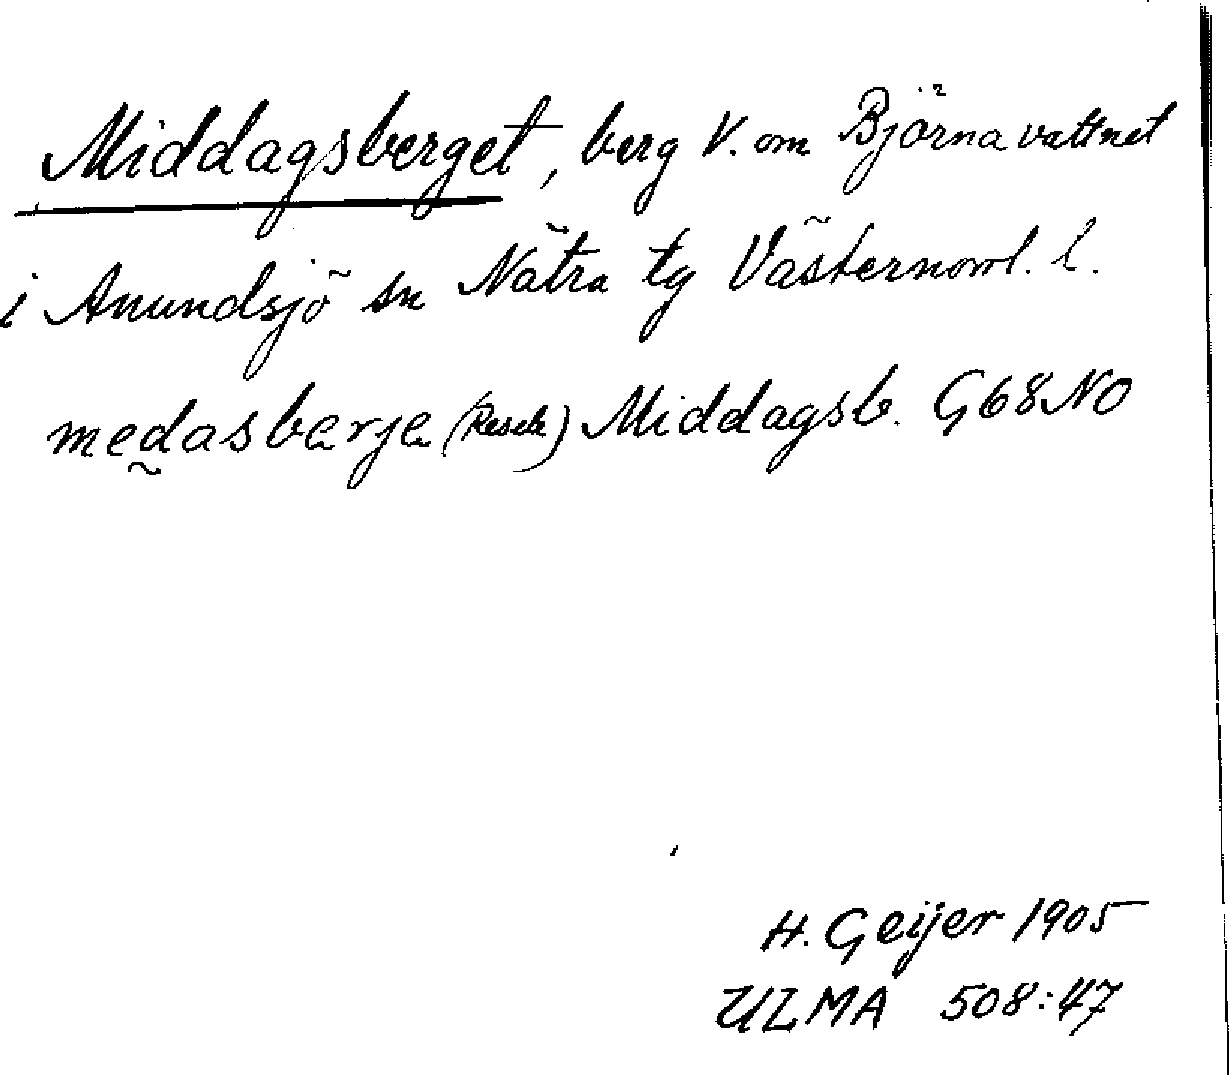 Middagsberget, berg V. om Björnavattnet
i Anundsjö sn Nätra tg Västernorrl. l.
medasberje (Resele) Middagsb. G68NO
H. Geijer 1905
ULMA 508:47